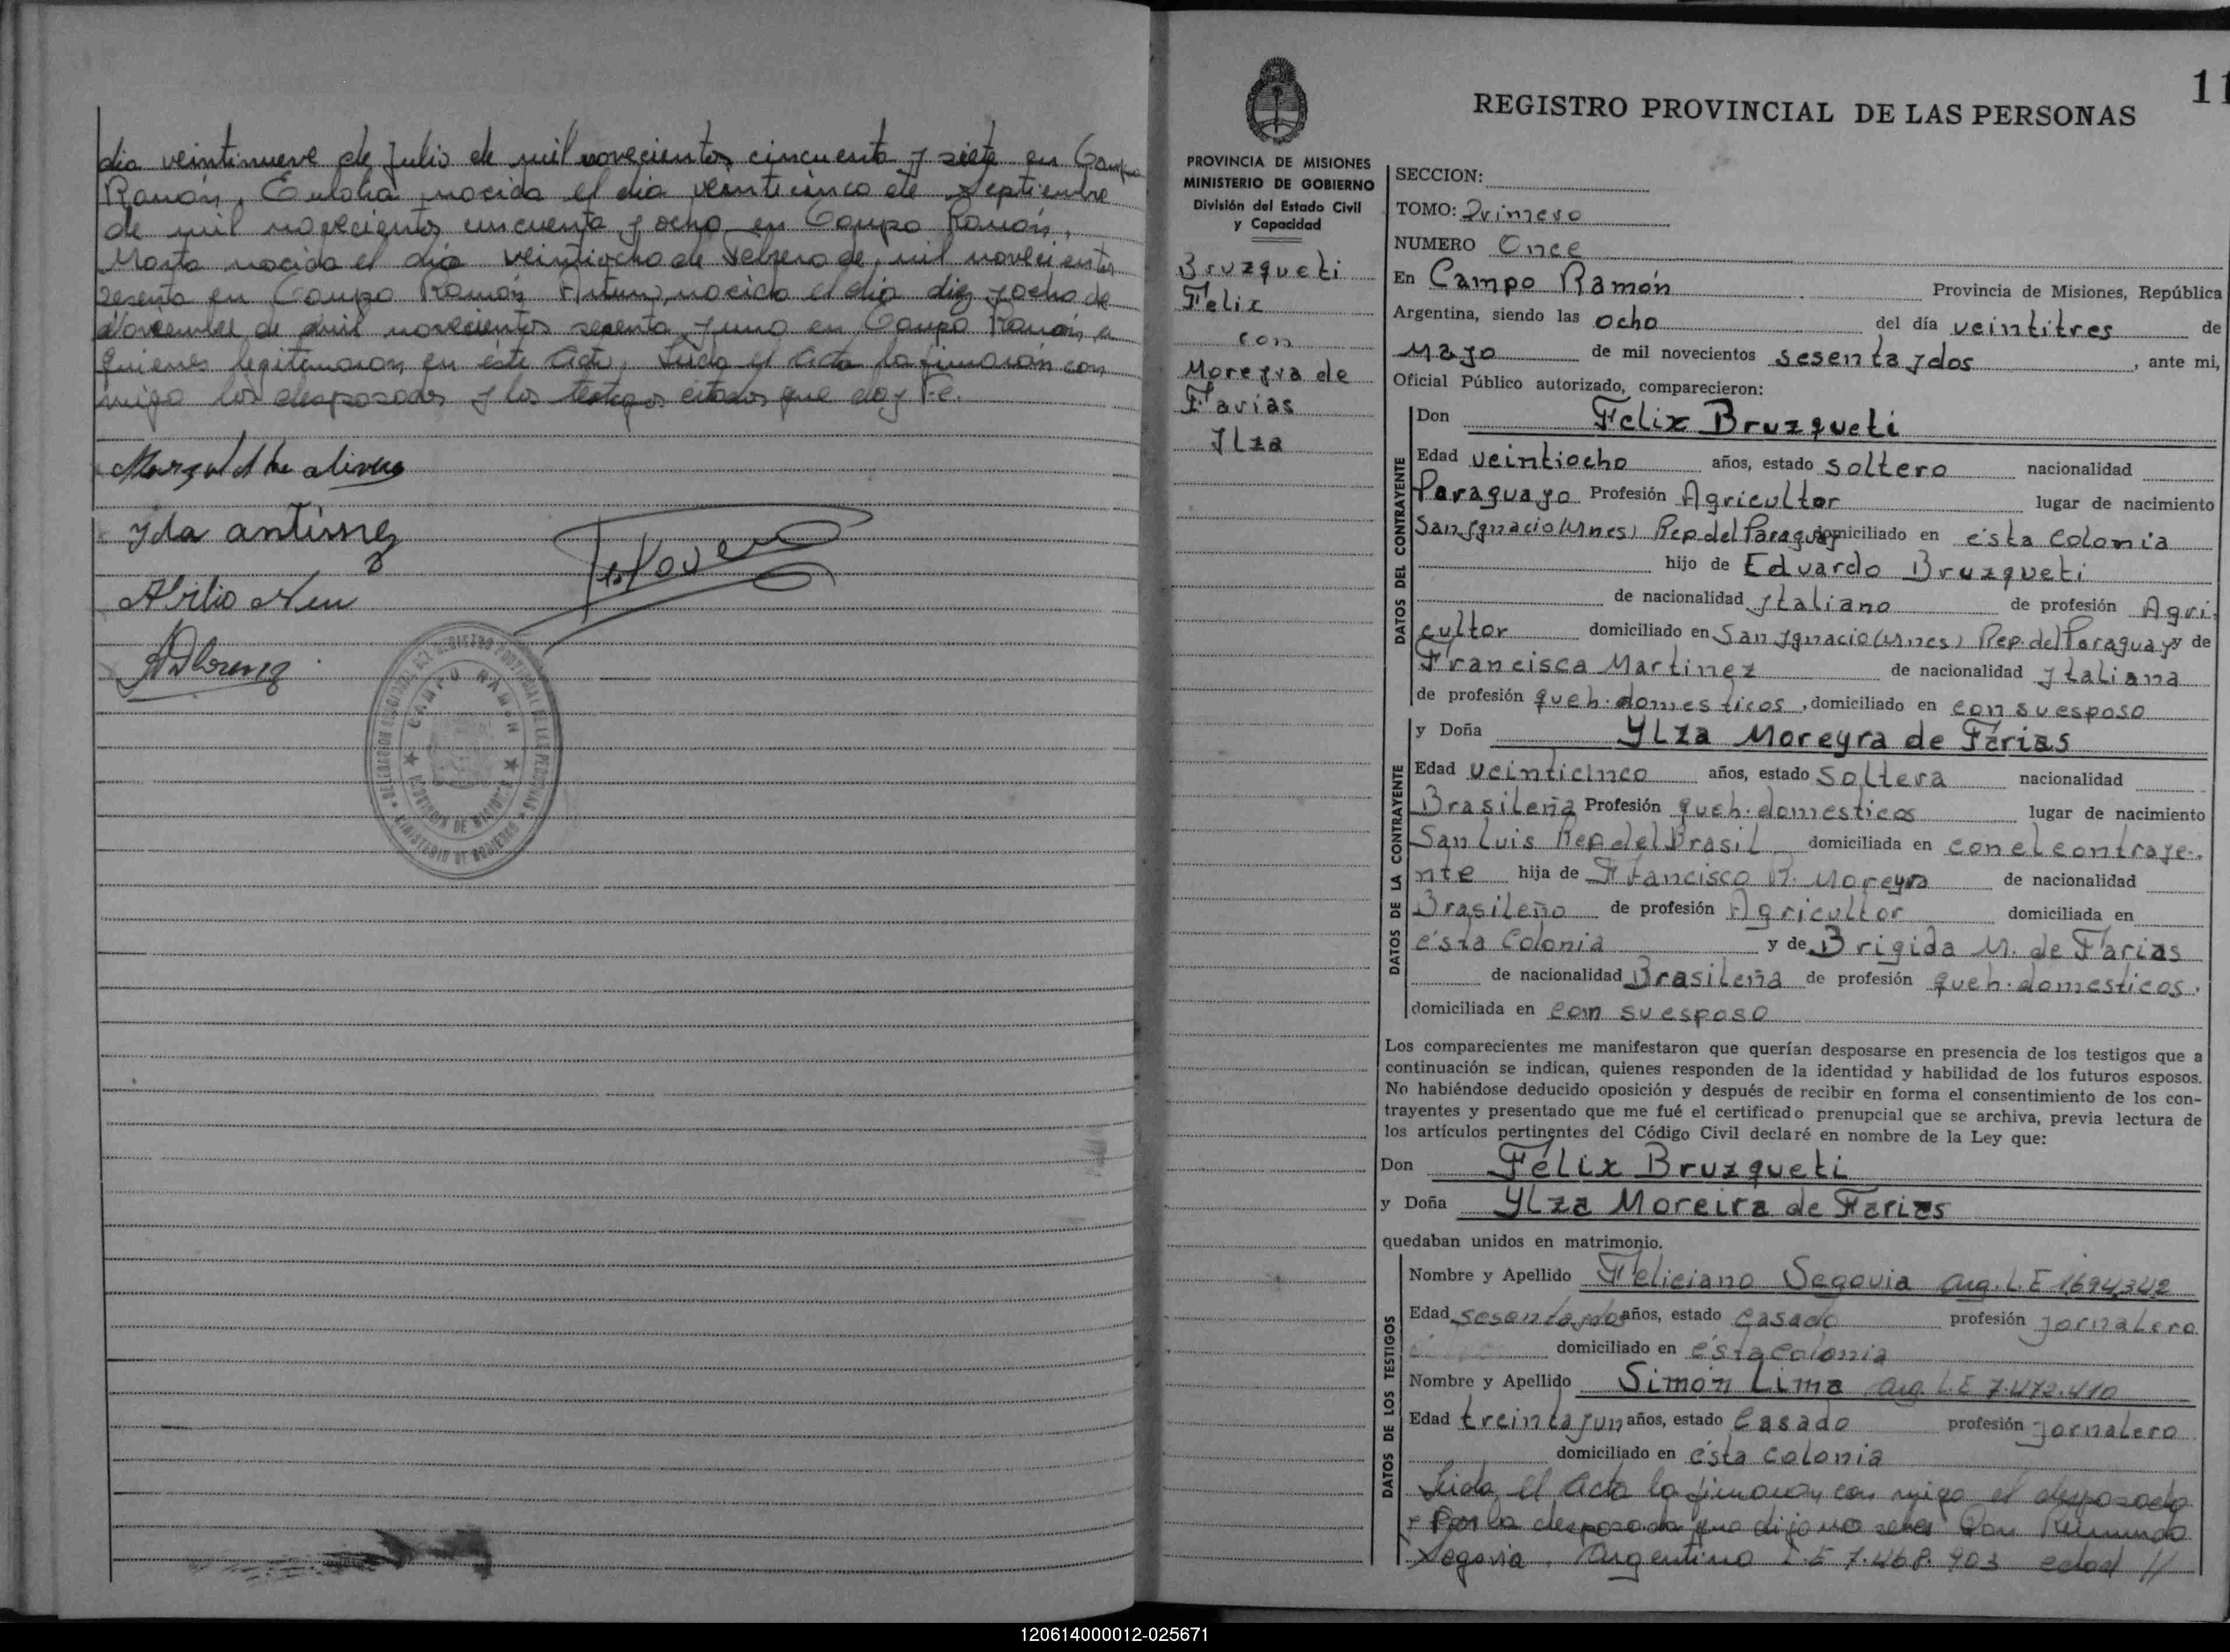 dia veintinueve de Julio de mil novecientos cincuenta y siete en Campo
Ramón, Eulalia nacida el dia veinticinco de Septiembre
de mil novecientos cincuenta y ocho en Campo Ramón,
Marta nacida el dia veintiocho de Febrero de mil novecientos
sesenta en Campo Ramón Arturo, nacido el dia diez y ocho de
Noviembre de mil novecientos sesenta y uno en Campo Ramón, a
quienes legitimaron en éste Acto, Leida el Acta la firmaron con
migo los desposados y los testigos citados que doy Fe.
Yda antunez
Abilio Neu
CAMPO RAMON
PROVINCIA DE MISIONES
MINISTERIO DE GOBIERNO
11
REGISTRO PROVINCIAL DE LAS PERSONAS
PROVINCIA DE MISIONES
MINISTERIO DE GOBIERNO
División del Estado Civil
y Capacidad
Bruzqueti
Felix
con
Moreyra de
Farias
Ylza
SECCION:
TOMO: Primero
NUMERO Once
En Campo Ramón Provincia de Misiones, República
Argentina, siendo las ocho del día veintitres de
Mayo de mil novecientos sesenta y dos, ante mi,
Oficial Público autorizado, comparecieron:
DATOS DEL CONTRAYENTE
Don Felix Bruzqueti
Edad veintiocho años, estado soltero nacionalidad
Paraguayo Profesión Agricultor lugar de nacimiento
San Ygnacio (Mnes) Rep del Paraguay domiciliado en ésta Colonia
hijo de Eduardo Bruzqueti
de nacionalidad Ytaliano de profesión Agri
cultor domiciliado en San Ygnacio (Mnes) Rep. del Paraguay y de
Francisca Martinez de nacionalidad Ytaliana
de profesión queh. domesticos, domiciliado en con su esposo
DATOS DE LA CONTRAYENTE
y Doña Ylza Moreyra de Farias
Edad veinticinco años, estado Soltera nacionalidad
Brasileña Profesión queh. domesticos lugar de nacimiento
San Luis Rep del Brasil domiciliada en con el contraye.
nte hija de Francisco R. Moreyra de nacionalidad
Brasileño de profesión Agricultor domiciliada en
ésta Colonia y de Brigida M. de Farias
de nacionalidad Brasileña de profesión queh. domesticos.
domiciliada en con su esposo
Los comparecientes me manifestaron que querían desposarse en presencia de los testigos que a
continuación se indican, quienes responden de la identidad y habilidad de los futuros esposos.
No habiéndose deducido oposición y después de recibir en forma el consentimiento de los con-
trayentes y presentado que me fué el certificado prenupcial que se archiva, previa lectura de
los artículos pertinentes del Código Civil declaré en nombre de la Ley que:
Don Félix Bruzqueti
y Doña Ylza Moreira de Farias
quedaban unidos en matrimonio.
DATOS DE LOS TESTIGOS
Nombre y Apellido Feliciano Segovia Arg. L.E 1694342
Edad sesenta y dos años, estado Casado profesión jornalero
domiciliado en ésta colonia
Nombre y Apellido Simón Lima Arg. L.E 7.472.410
Edad treinta y un años, estado Casado profesión jornalero
domiciliado en ésta colonia
Leida el Acta la firmaron con migo el desposado
y Por la desposada que dijo no saber Don Reimundo
Segovia. Argentino L.E 7.468.903 edad //
120614000012-025671